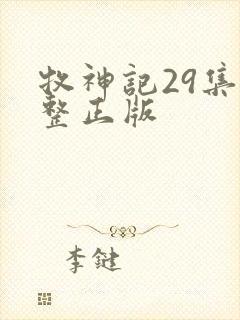 牧神记29集
整正版
李键